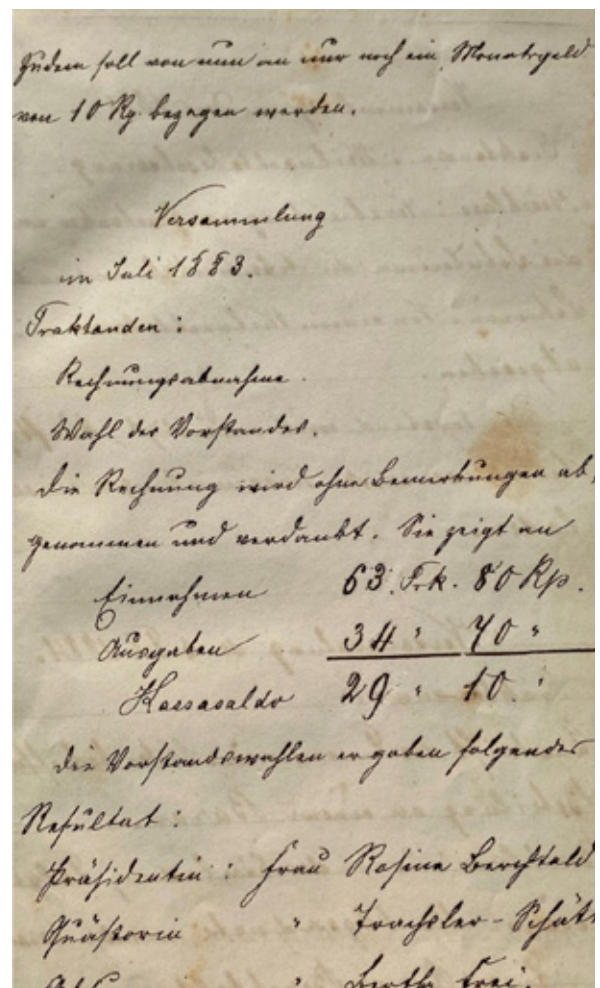 Zudem soll von nun an nur noch ein Monatsgeld
von 10 Rp. bezogen werden.
Versammlung
im Juli 1883.
Traktanden :
Rechnungsabnahme.
Wahl des Vorstandes.
Die Rechnung wird ohne Bemerkungen ab,
genommen und verdankt. Sie zeigt an
Einnahmen 63. Frk. 80 Rp.
Ausgaben 34 " 70 "
Kassasaldo 29 " 10. "
Die Vorstandswahlen ergaben folgendes
Resultat :
Präsidentin : Frau Rosina Berchtold
Quästorin " Trachsler - Schätt
" Bertha Frei.